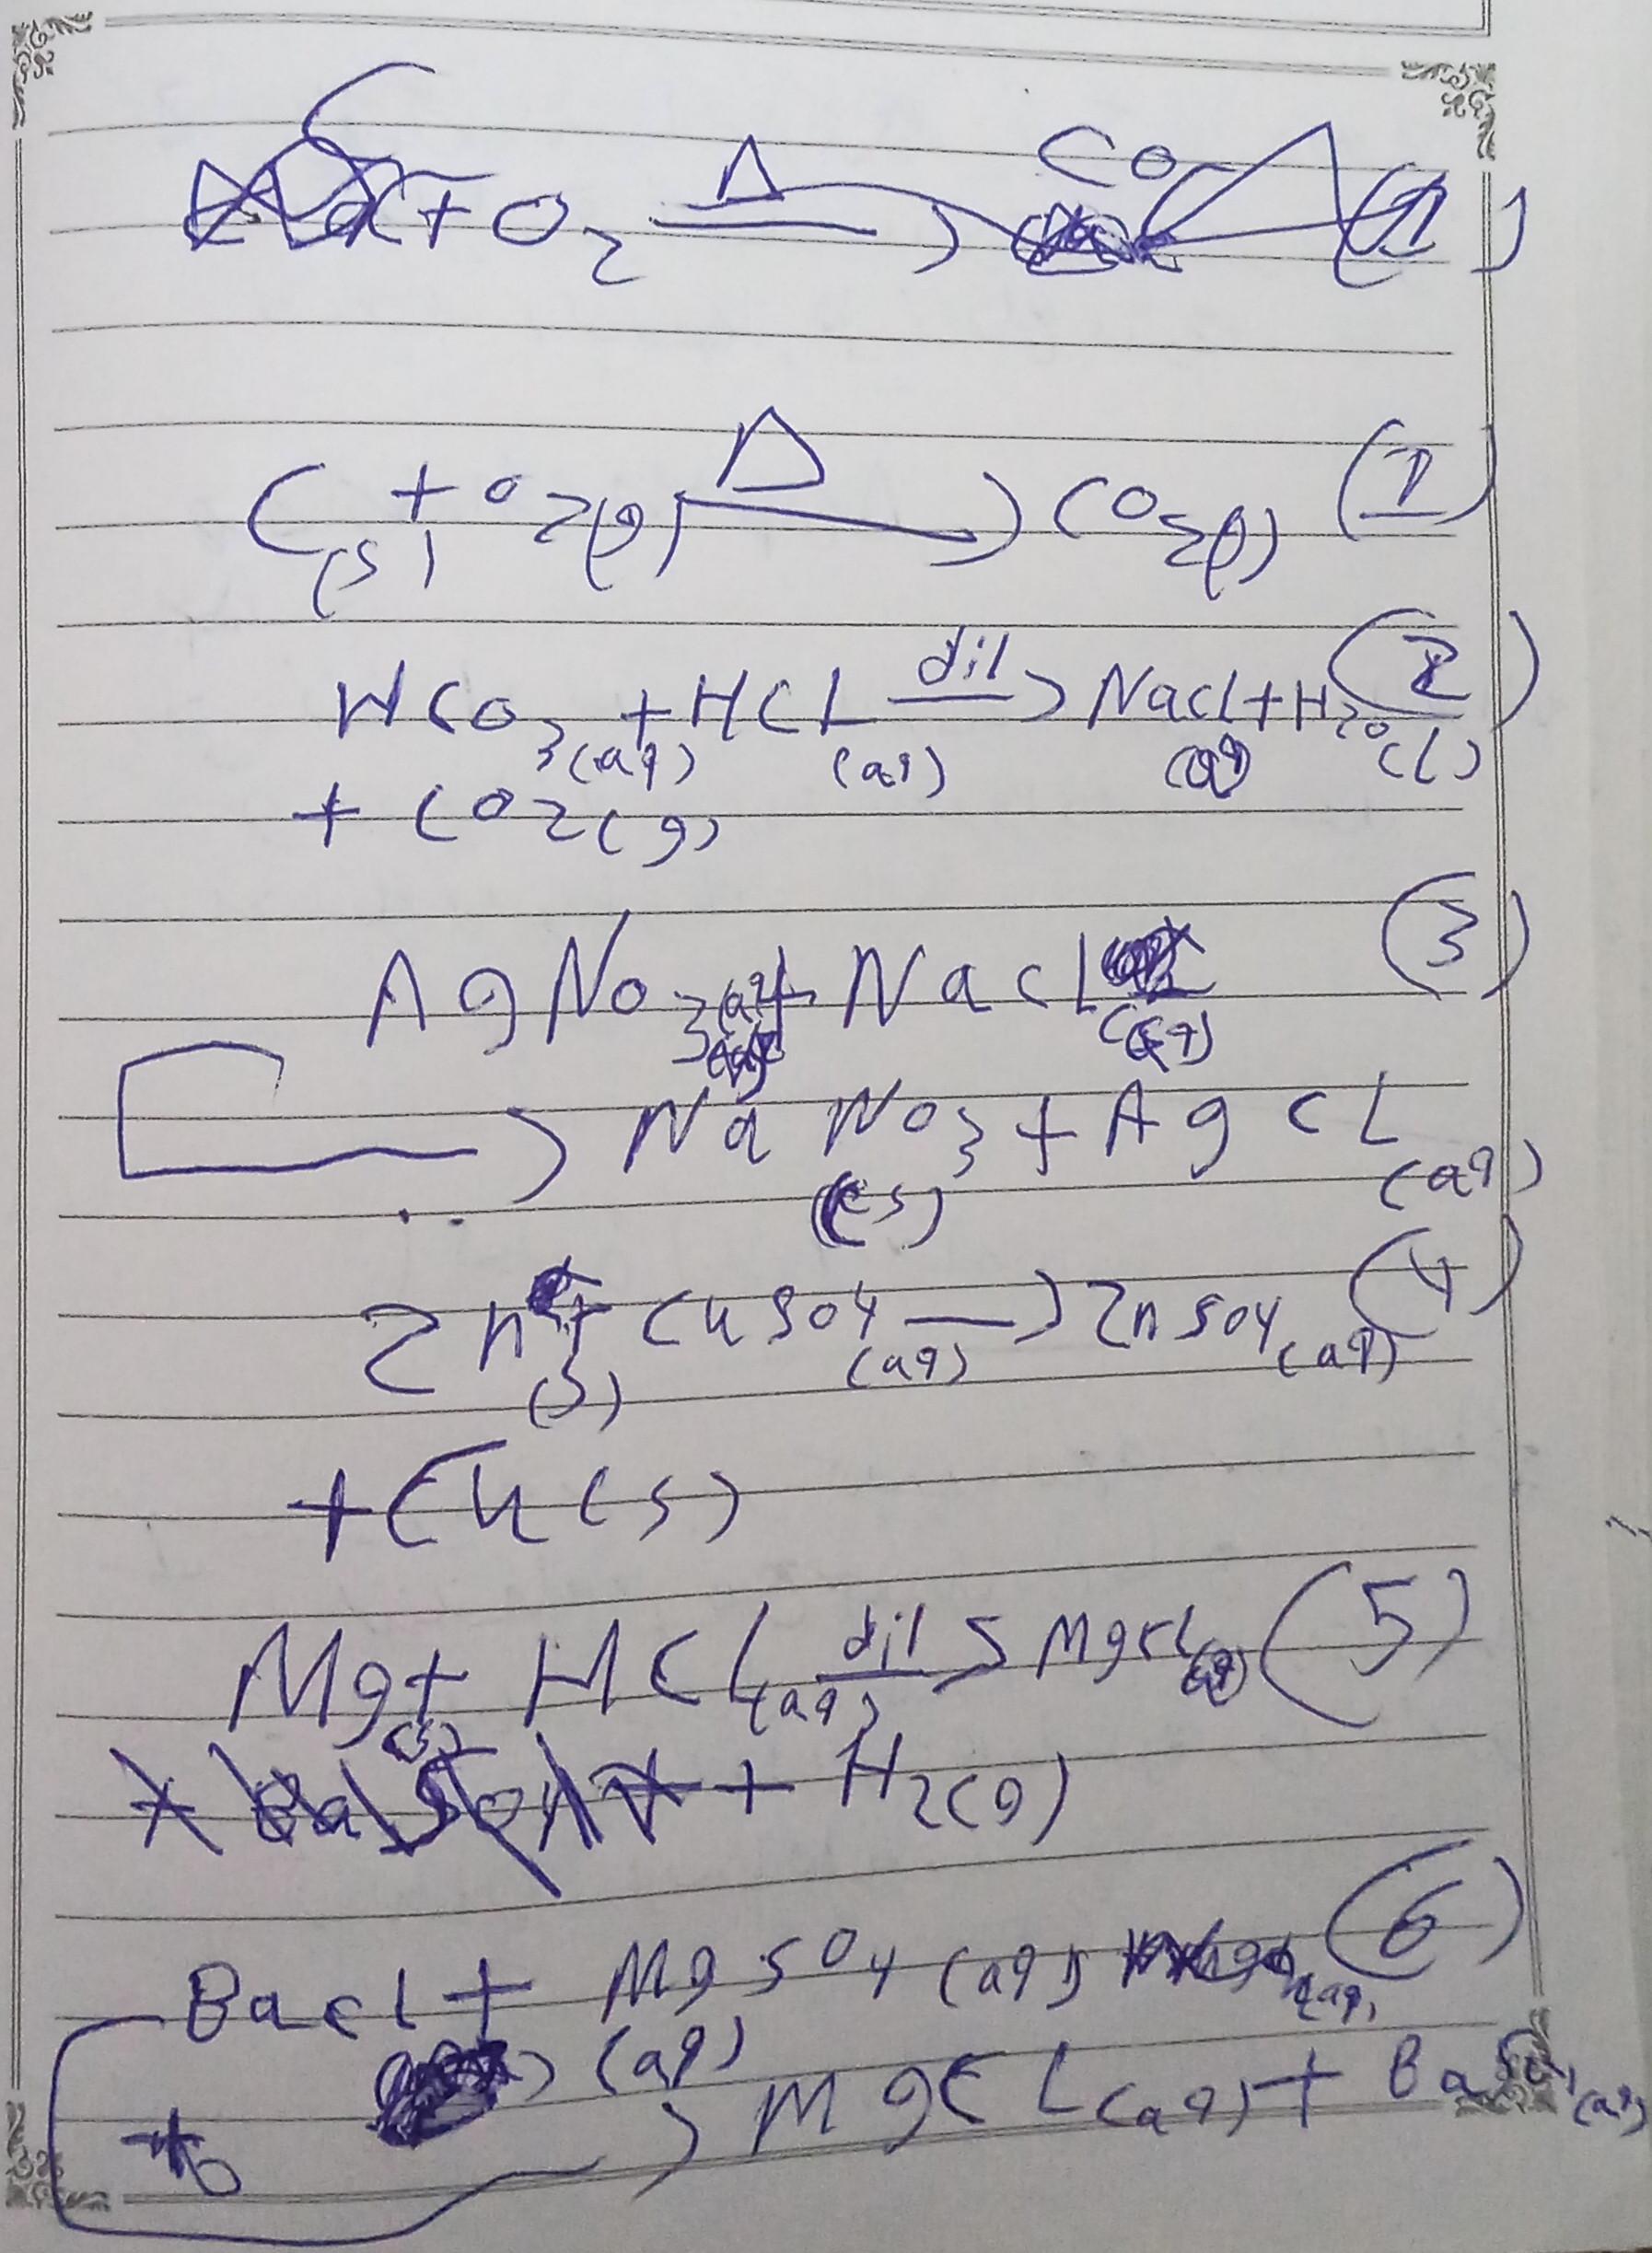 + O2 Δ → CO (1)
C(s) + O2(g) Δ → CO2(g) (1)
NCO3(aq) + HCL(aq) dil → Nacl(aq) + H2O(l) (2)
+ CO2(g)
AgNO3(aq) + Nacl(aq) (3)
→ NaNO3(s) + AgCL(aq)
Zn(s) + CuSO4(aq) → ZnSO4(aq) (4)
+ Cu(s)
Mg(s) + HCL(aq) dil → Mgcl(aq) (5)
+ H2(g)
Bacl + MgSO4(aq) (6)
(aq)
→ MgCL(aq) + BaSO4(aq)